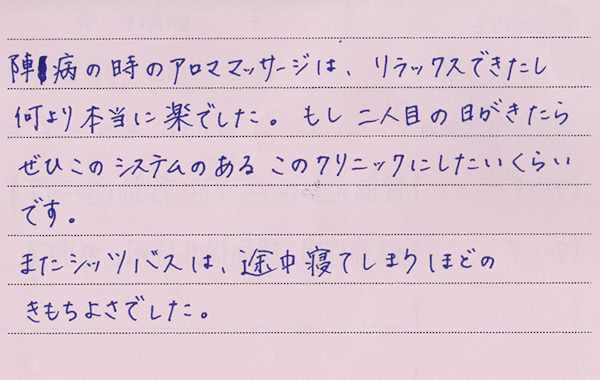 陣病の時のアロママッサージは、リラックスできたし
何より本当に楽でした。もし二人目の日がきたら
ぜひこのシステムのあるこのクリニックにしたいくらい
です。
またシッツバスは、途中寝てしまうほどの
きもちよさでした。